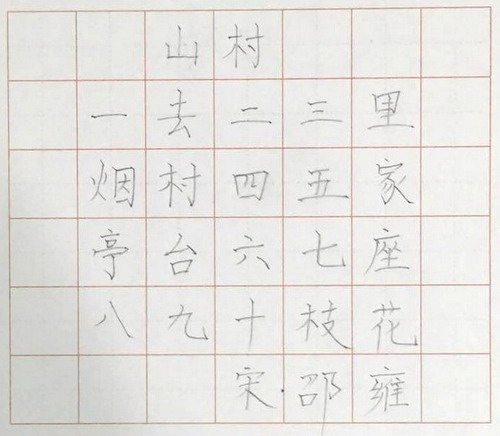 山村
一去二三里
烟村四五家
亭台六七座
八九十枝花
宋·邵雍